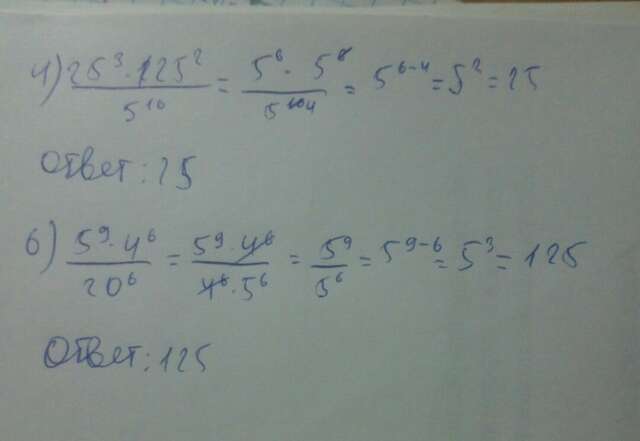 4) 25³ · 125² / 5¹⁰ = 5⁶ · 5⁶ / 5¹⁰ ⁴ = 5⁶⁻⁴ = 5² = 25
Ответ: 25
6) 5⁹ · 4⁶ / 20⁶ = 5⁹ · 4⁶ / 4⁶ · 5⁶ = 5⁹ / 5⁶ = 5⁹⁻⁶ = 5³ = 125
Ответ: 125